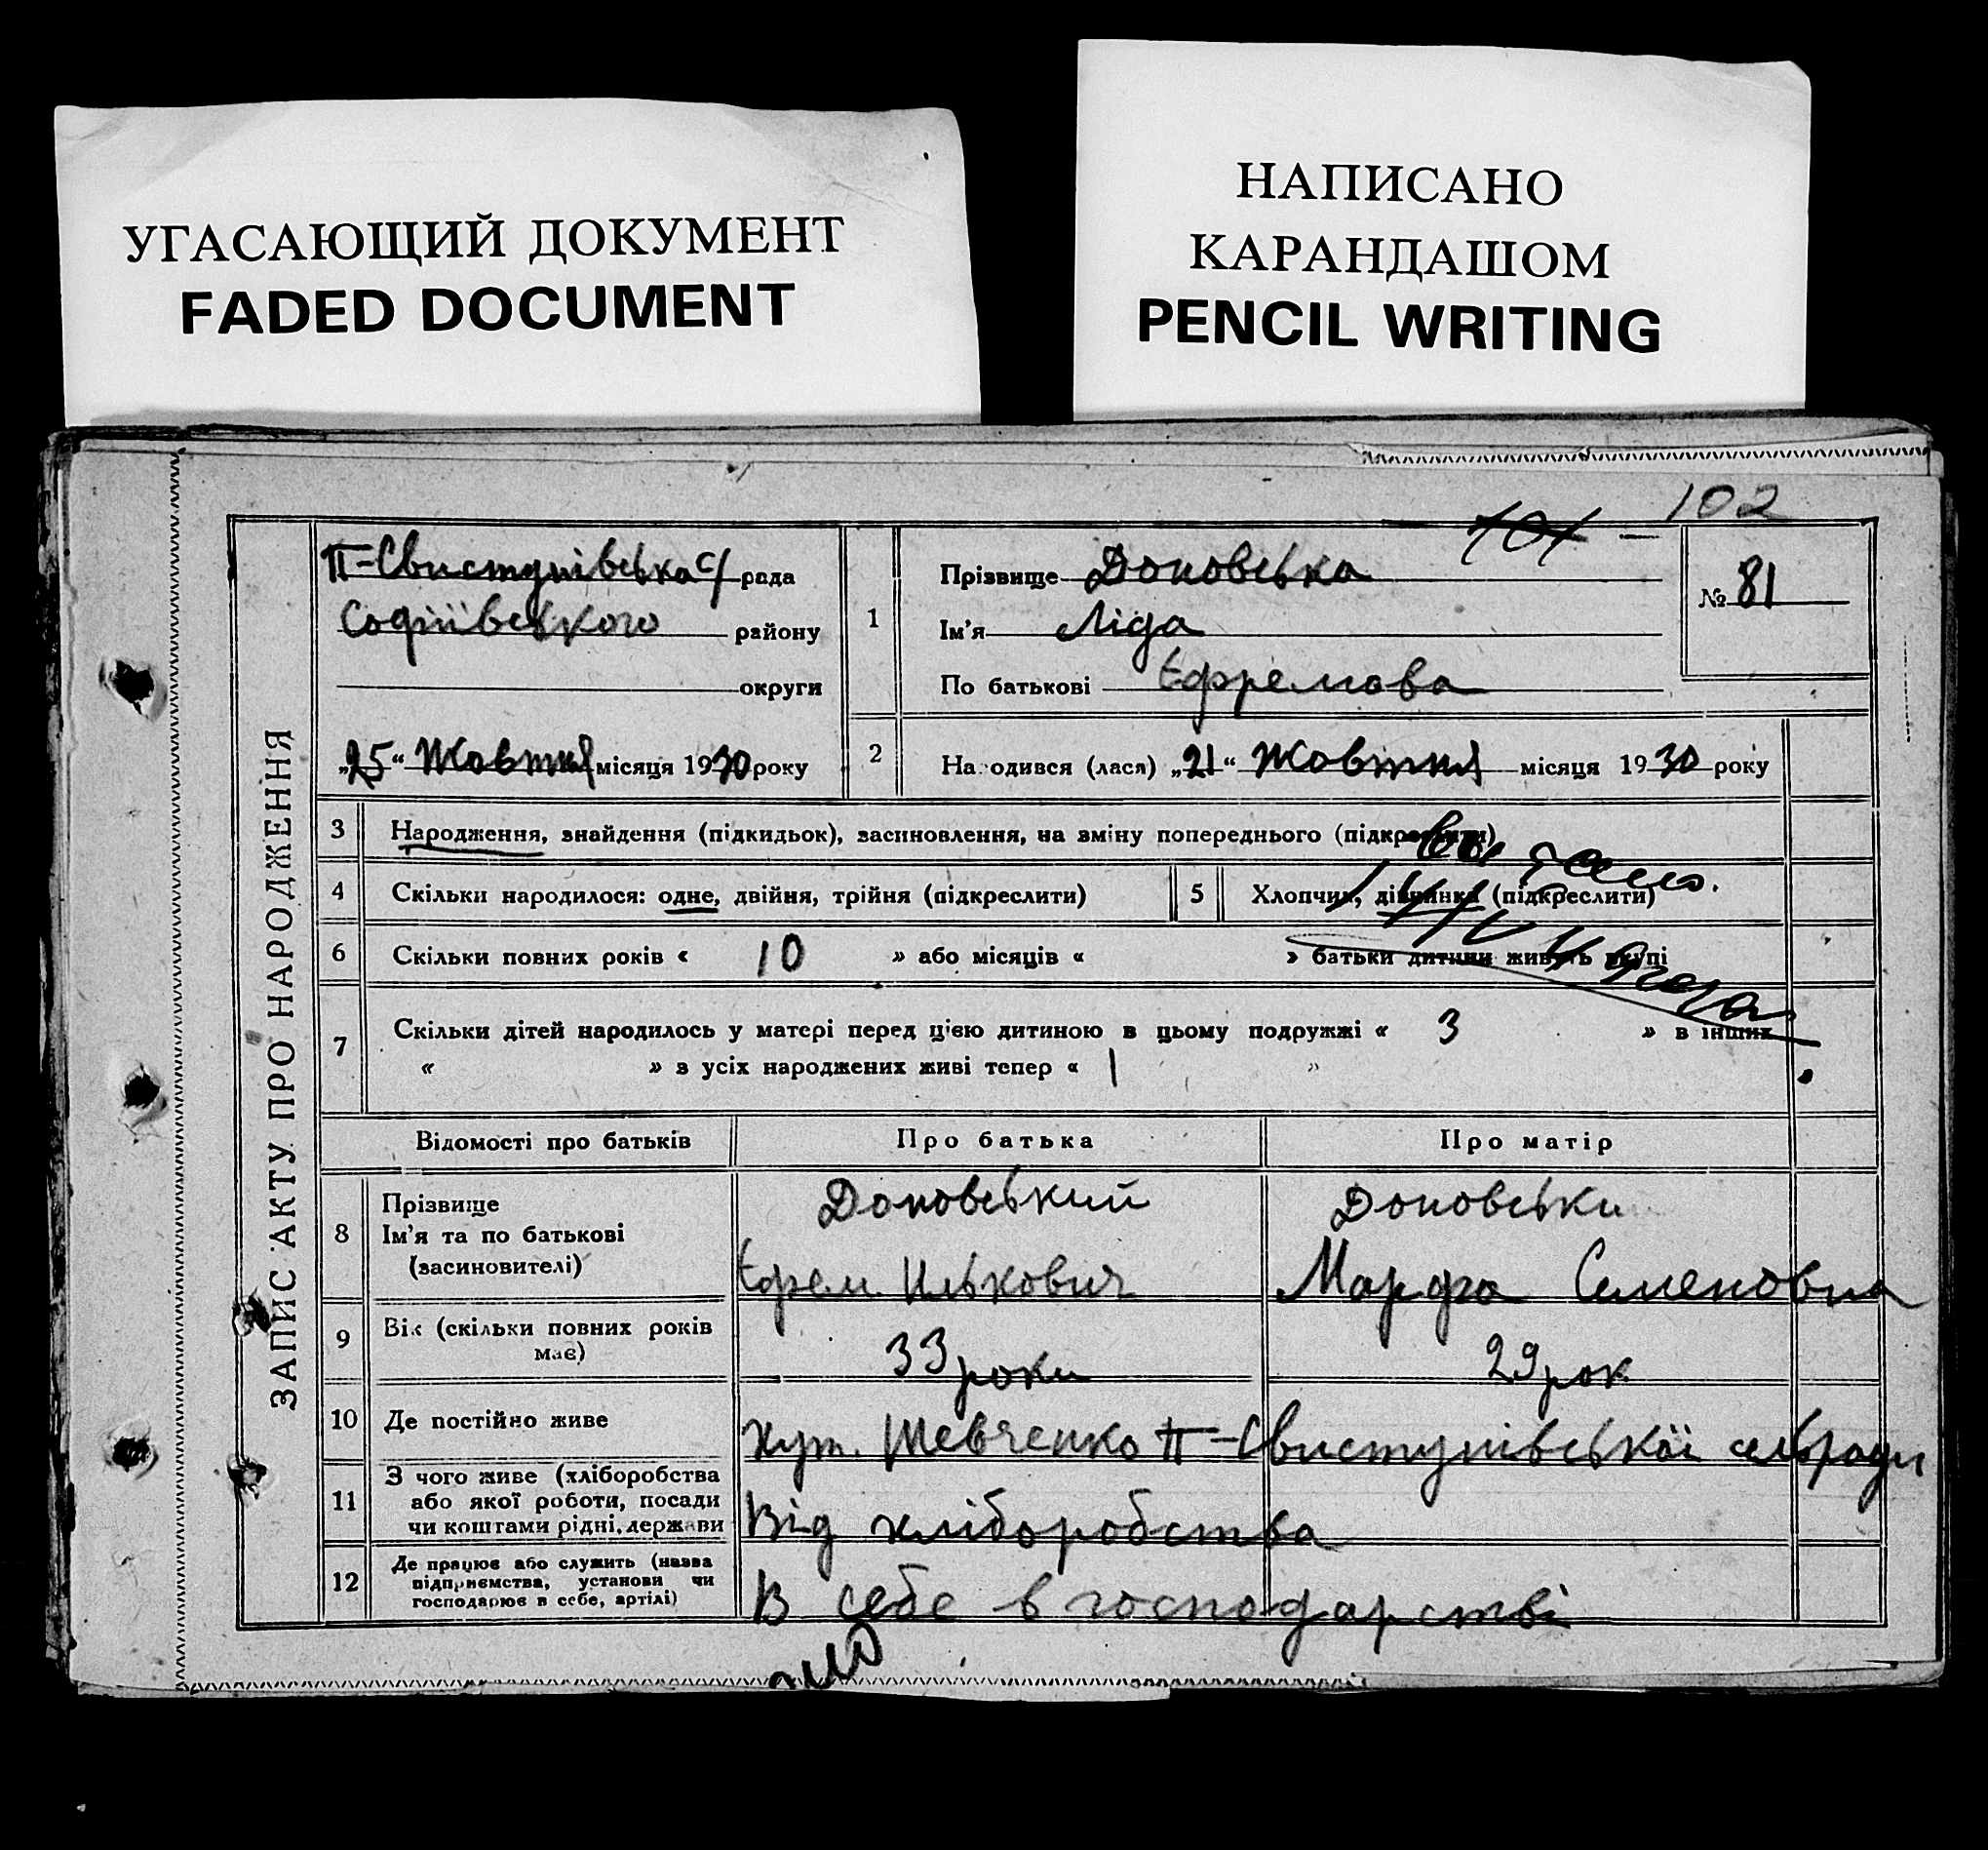 УГАСАЮЩИЙ ДОКУМЕНТ
FADED DOCUMENT
НАПИСАНО
КАРАНДАШОМ
PENCIL WRITING
102
101
ЗАПИС АКТУ ПРО НАРОДЖЕННЯ
П-Свистунівська с/ рада
Софіївського району
округи
„25“ Жовтня місяця 1930 року
1
Прізвище Доновська
Ім'я Ліда
По батькові Єфремова
№ 81
2 На одився (лася) „21“ Жовтня місяця 1930 року
3 Народження, знайдення (підкидьок), засиновлення, на зміну попереднього (підкреслити)
4 Скільки народилося: одне, двійня, трійня (підкреслити) 5 Хлопчик, дівчинка (підкреслити)
6 Скільки повних років « 10 » або місяців « » батьки дитини живуть вкупі
7 Скільки дітей народилось у матері перед цією дитиною в цьому подружжі « 3 » в інших
« » з усіх народжених живі тепер « 1 »
Відомості про батьків Про батька Про матір
8 Прізвище Доновський Доновськи
Ім'я та по батькові
(засиновителі) Єфрем Илькович Марфа Семеновна
9 Вік (скільки повних років має) 33 роки 29 рок
10 Де постійно живе хут. Шевченко П-Свистунівської сельради
11 З чого живе (хліборобства
або якої роботи, посади
чи коштами рідні, держави Від хліборобства
12 Де працює або служить (назва
підприємства, установи чи
господарює в себе, артілі) В себе в господарстві